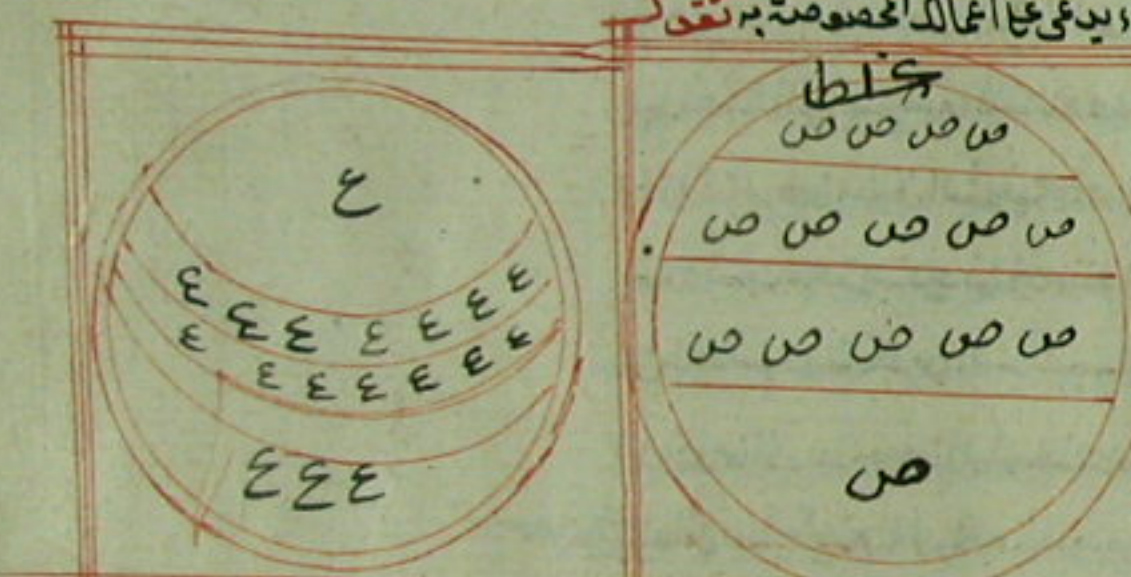 يدعى على اعمالك المخصوصة به تقول
غلط
ص ص ص ص
ص ص ص ص ص
ص ص ص ص ص
ص
ع
ع ع ع ع ع ع ع
ع ع ع ع ع ع ع
ع ع ع